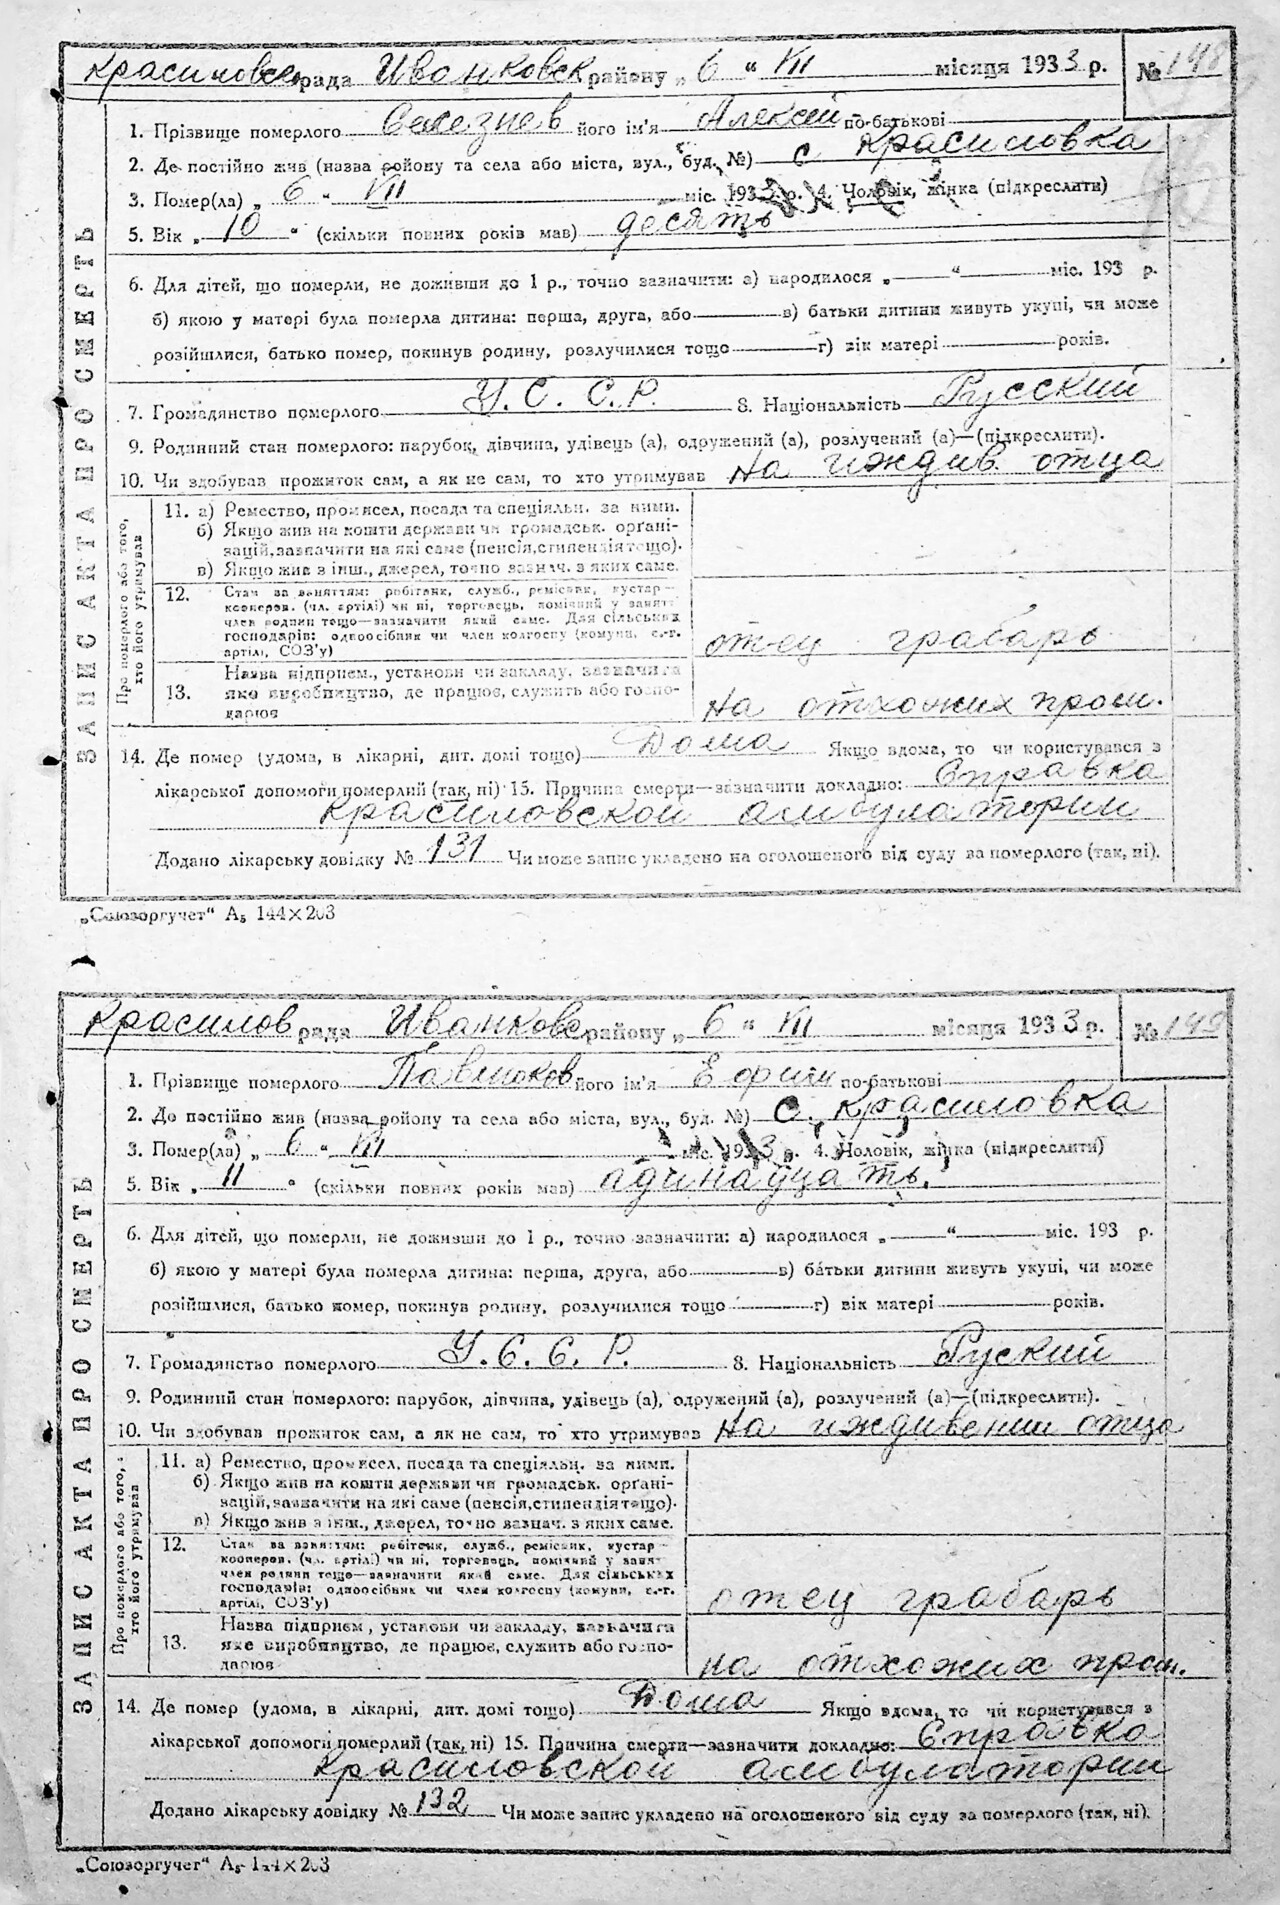 Красиловск рада Иванковск району „ 6 “ VII місяця 1933 р. № 148
1. Прізвище померлого Селезнев його ім'я Алексей по-батькові
2. Де постійно жив (назва району та села або міста, вул., буд. №) с Красиловка
3. Помер(ла) „ 6 “ VII міс. 1933 р. 4. Чоловік, жінка (підкреслити)
5. Вік „ 10 “ (скільки повних років мав) десять
6. Для дітей, що померли, не доживши до 1 р., точно зазначити: а) народилося „ “ міс. 193 р.
б) якою у матері була померла дитина: перша, друга, або в) батьки дитини живуть укупі, чи може
розійшлися, батько помер, покинув родину, розлучилися тощо г) вік матері років.
7. Громадянство померлого У.С.С.Р. 8. Національність Русский
9. Родинний стан померлого: парубок, дівчина, удівець (а), одружений (а), розлучений (а)—(підкреслити).
10. Чи здобував прожиток сам, а як не сам, то хто утримував на иждив. отца
ЗАПИС АКТА ПРО СМЕРТЬ
Про померлого або того,
хто його утримував
11. а) Ремество, промисел, посада та спеціяльн. за ними.
б) Якщо жив на кошти держави чи громадськ. орґані-
зацій, зазначити на які саме (пенсія, стипендія тощо).
в) Якщо жив з інш., джерел, точно зазнач. з яких саме.
12. Стан за заняттям: робітник, служб., ремісник, кустар—
кооперов. (чл. артілі) чи ні, торговець, помічний у занят.
член родини тощо—зазначити який саме. Для сільських
господарів: одноосібник чи член колгоспу (комуни, с.-г.
артілі, СОЗ'у)
отец грабарь
13. Назва підприєм., установи чи закладу, зазначити
яке виробництво, де працює, служить або госпо-
дарює
на отхожих пром.
14. Де помер (удома, в лікарні, дит. домі тощо) Дома Якщо вдома, то чи користувався з
лікарської допомоги померлий (так, ні) 15. Причина смерти—зазначити докладно: Справка
Красиловской амбулатории
Додано лікарську довідку № 131 Чи може запис укладено на оголошеного від суду за померлого (так, ні).
„Союзоргучет“ А5 144×203
Красилов рада Иванковс району „ 6 “ VII місяця 1933 р. № 149
1. Прізвище померлого Павлюков його ім'я Ефим по-батькові
2. Де постійно жив (назва району та села або міста, вул., буд. №) с. Красиловка
3. Помер(ла) „ 6 “ VII міс. 1933 р. 4. Чоловік, жінка (підкреслити)
5. Вік „ 11 “ (скільки повних років мав) адинадцать.
6. Для дітей, що померли, не доживши до 1 р., точно зазначити: а) народилося „ “ міс. 193 р.
б) якою у матері була померла дитина: перша, друга, або в) батьки дитини живуть укупі, чи може
розійшлися, батько помер, покинув родину, розлучилися тощо г) вік матері років.
7. Громадянство померлого У.С.С.Р. 8. Національність Руский
9. Родинний стан померлого: парубок, дівчина, удівець (а), одружений (а), розлучений (а)—(підкреслити).
10. Чи здобував прожиток сам, а як не сам, то хто утримував на иждивении отца
ЗАПИС АКТА ПРО СМЕРТЬ
Про померлого або того,
хто його утримував
11. а) Ремество, промисел, посада та спеціяльн. за ними.
б) Якщо жив на кошти держави чи громадськ. орґані-
зацій, зазначити на які саме (пенсія, стипендія тощо).
в) Якщо жив з інш., джерел, точно зазнач. з яких саме.
12. Стан за заняттям: робітник, служб., ремісник, кустар—
кооперов. (чл. артілі) чи ні, торговець, помічний у занят.
член родини тощо—зазначити який саме. Для сільських
господарів: одноосібник чи член колгоспу (комуни, с.-г.
артілі, СОЗ'у)
отец грабарь
13. Назва підприєм., установи чи закладу, зазначити
яке виробництво, де працює, служить або госпо-
дарює
на отхожих пром.
14. Де помер (удома, в лікарні, дит. домі тощо) Дома Якщо вдома, то чи користувався з
лікарської допомоги померлий (так, ні) 15. Причина смерти—зазначити докладно: Справка
Красиловской амбулатории
Додано лікарську довідку № 132 Чи може запис укладено на оголошеного від суду за померлого (так, ні).
„Союзоргучет“ А5 144×203